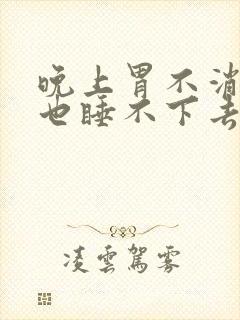 晚上胃不消
也睡不下去
凌雲駕雾